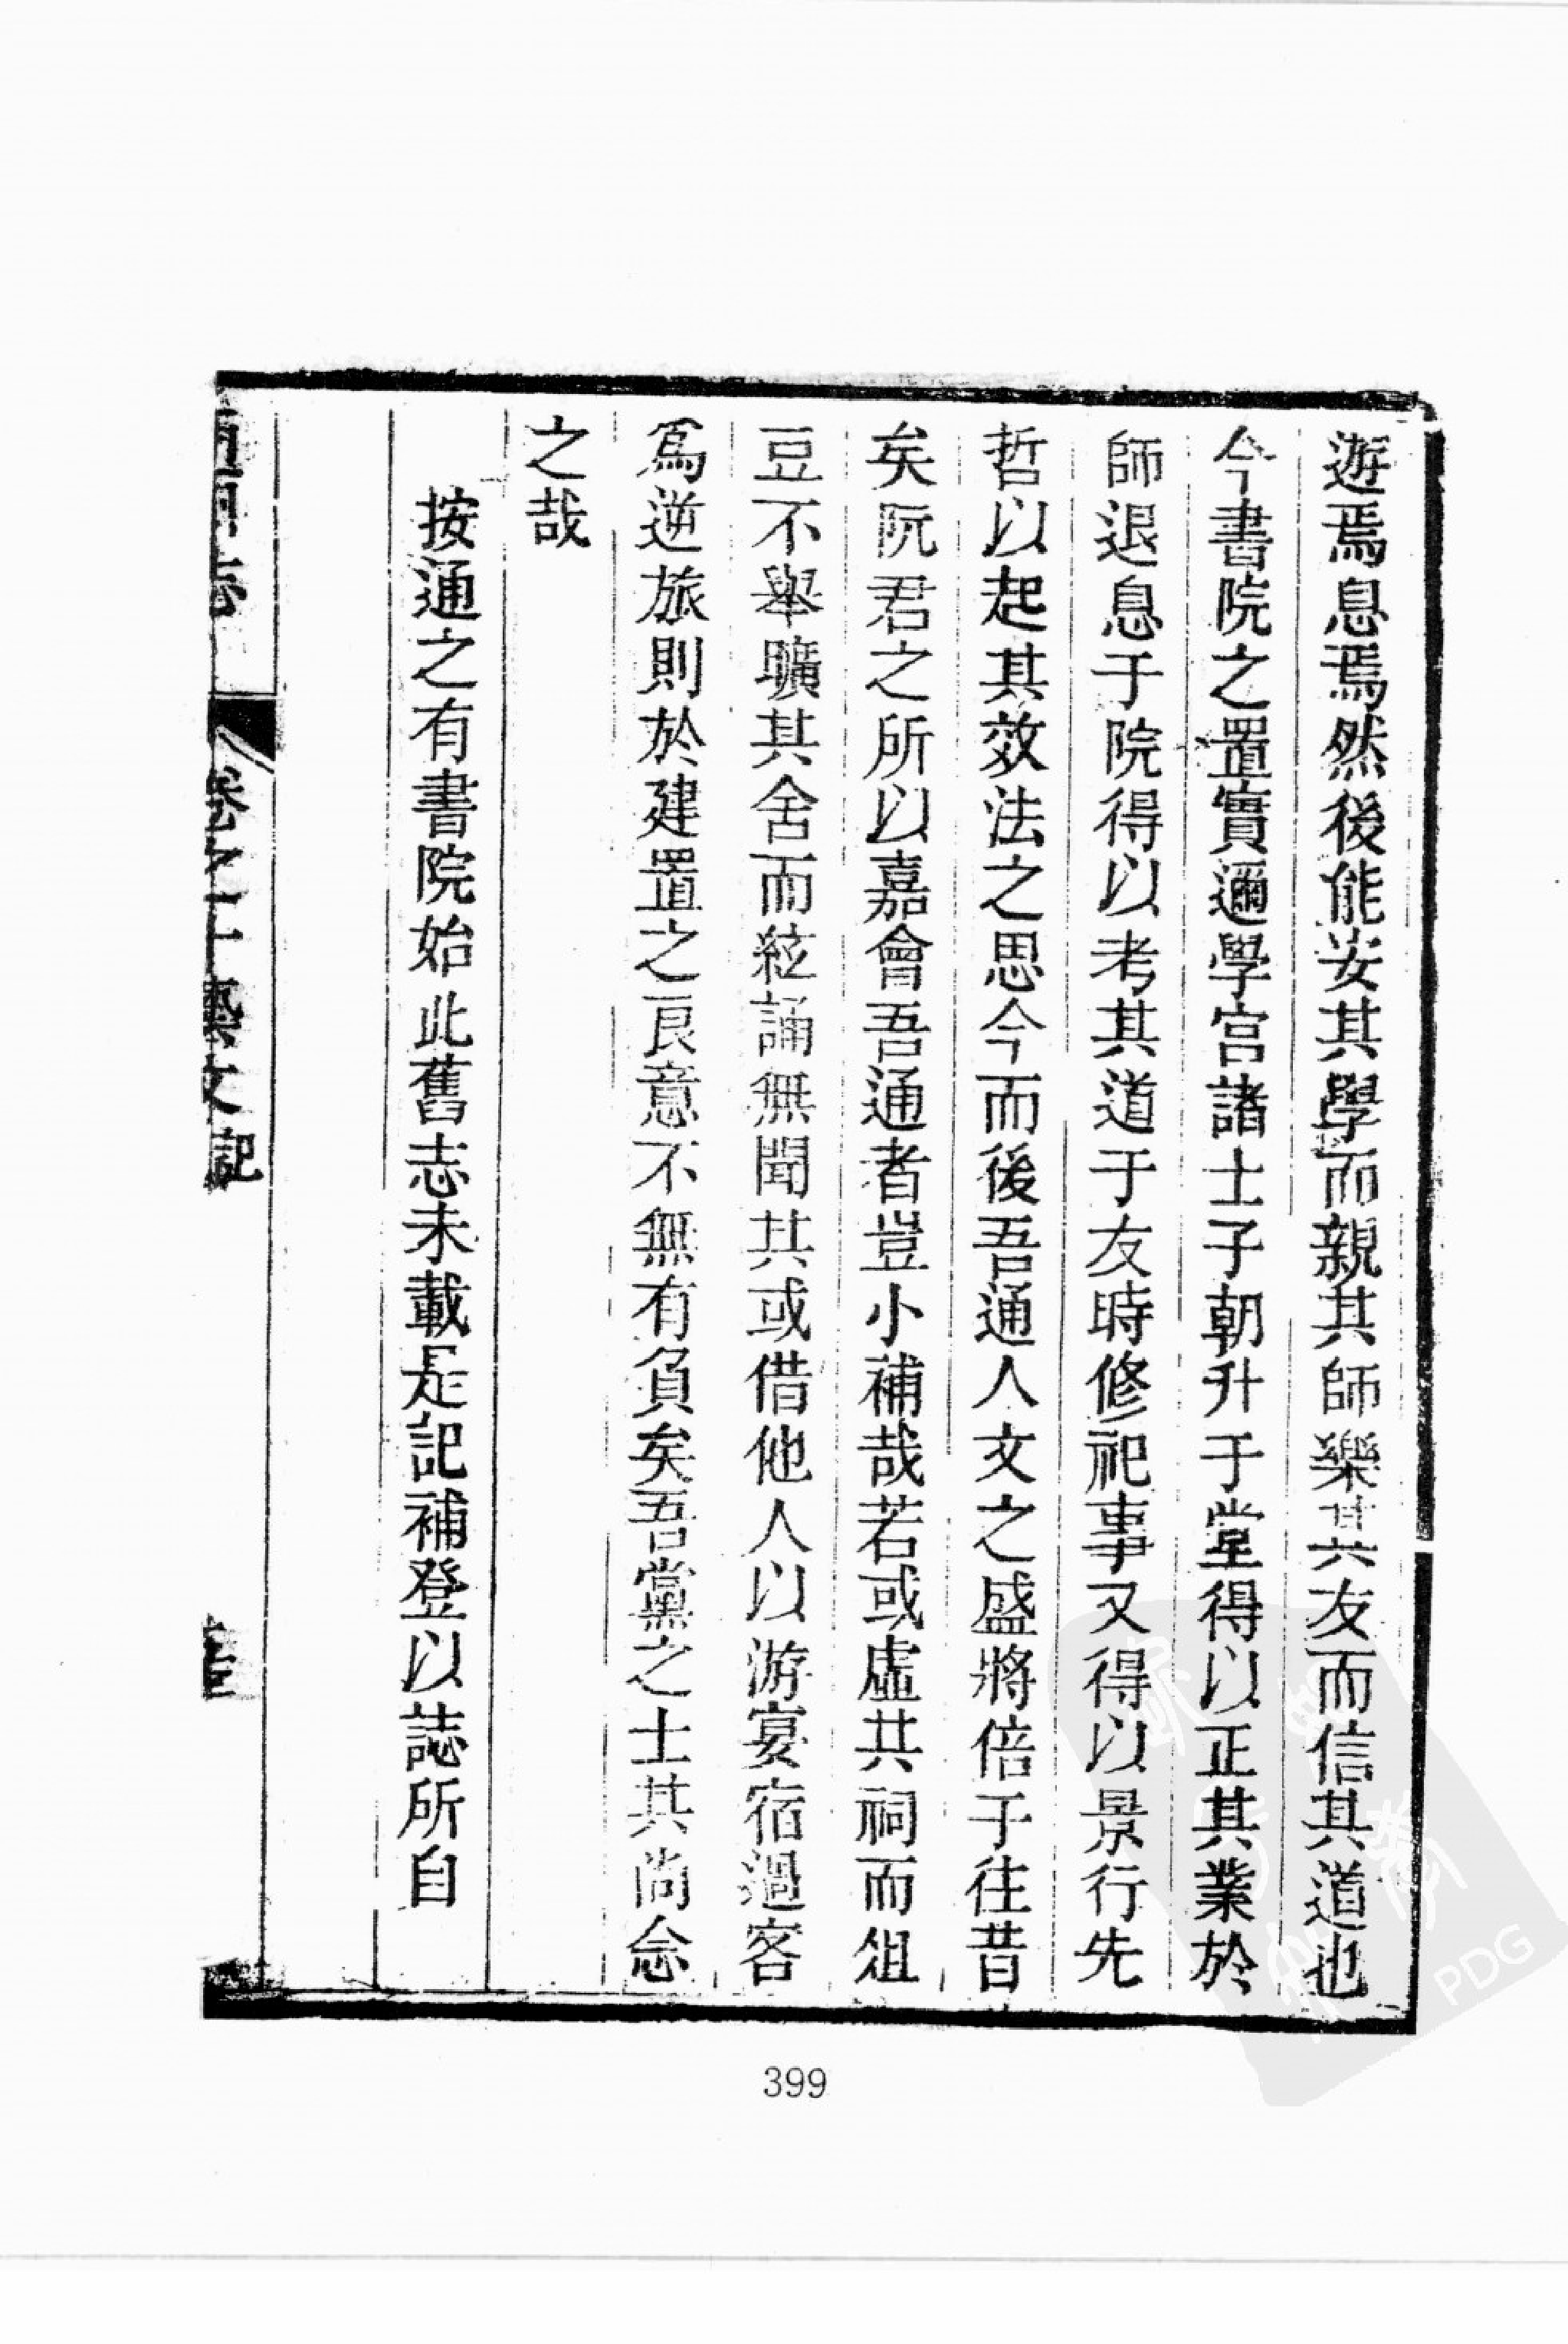 遊焉息焉然後能安其學而親其師樂其友而信其道也
今書院之置實邇學宮諸士子朝升于堂得以正其業於
師退息于院得以考其道于友時修祀事又得以景行先
哲以起其效法之思今而後吾通人文之盛將倍于往昔
矣阮君之所以嘉會吾通者豈小補哉若或虛其祠而俎
豆不舉曠其舍而絃誦無聞其或借他人以游宴宿過客
爲逆旅則於建置之良意不無有負矣吾黨之士其尚念
之哉
按通之有書院始此舊志未載是記補登以誌所自
志
卷之十藝文記
399
PDG